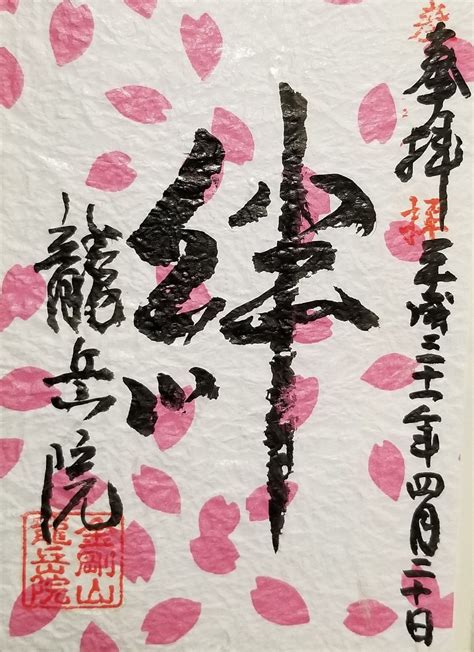 奉拝
平成三十一年四月二十日
絆
龍岳院
金剛山
龍岳院